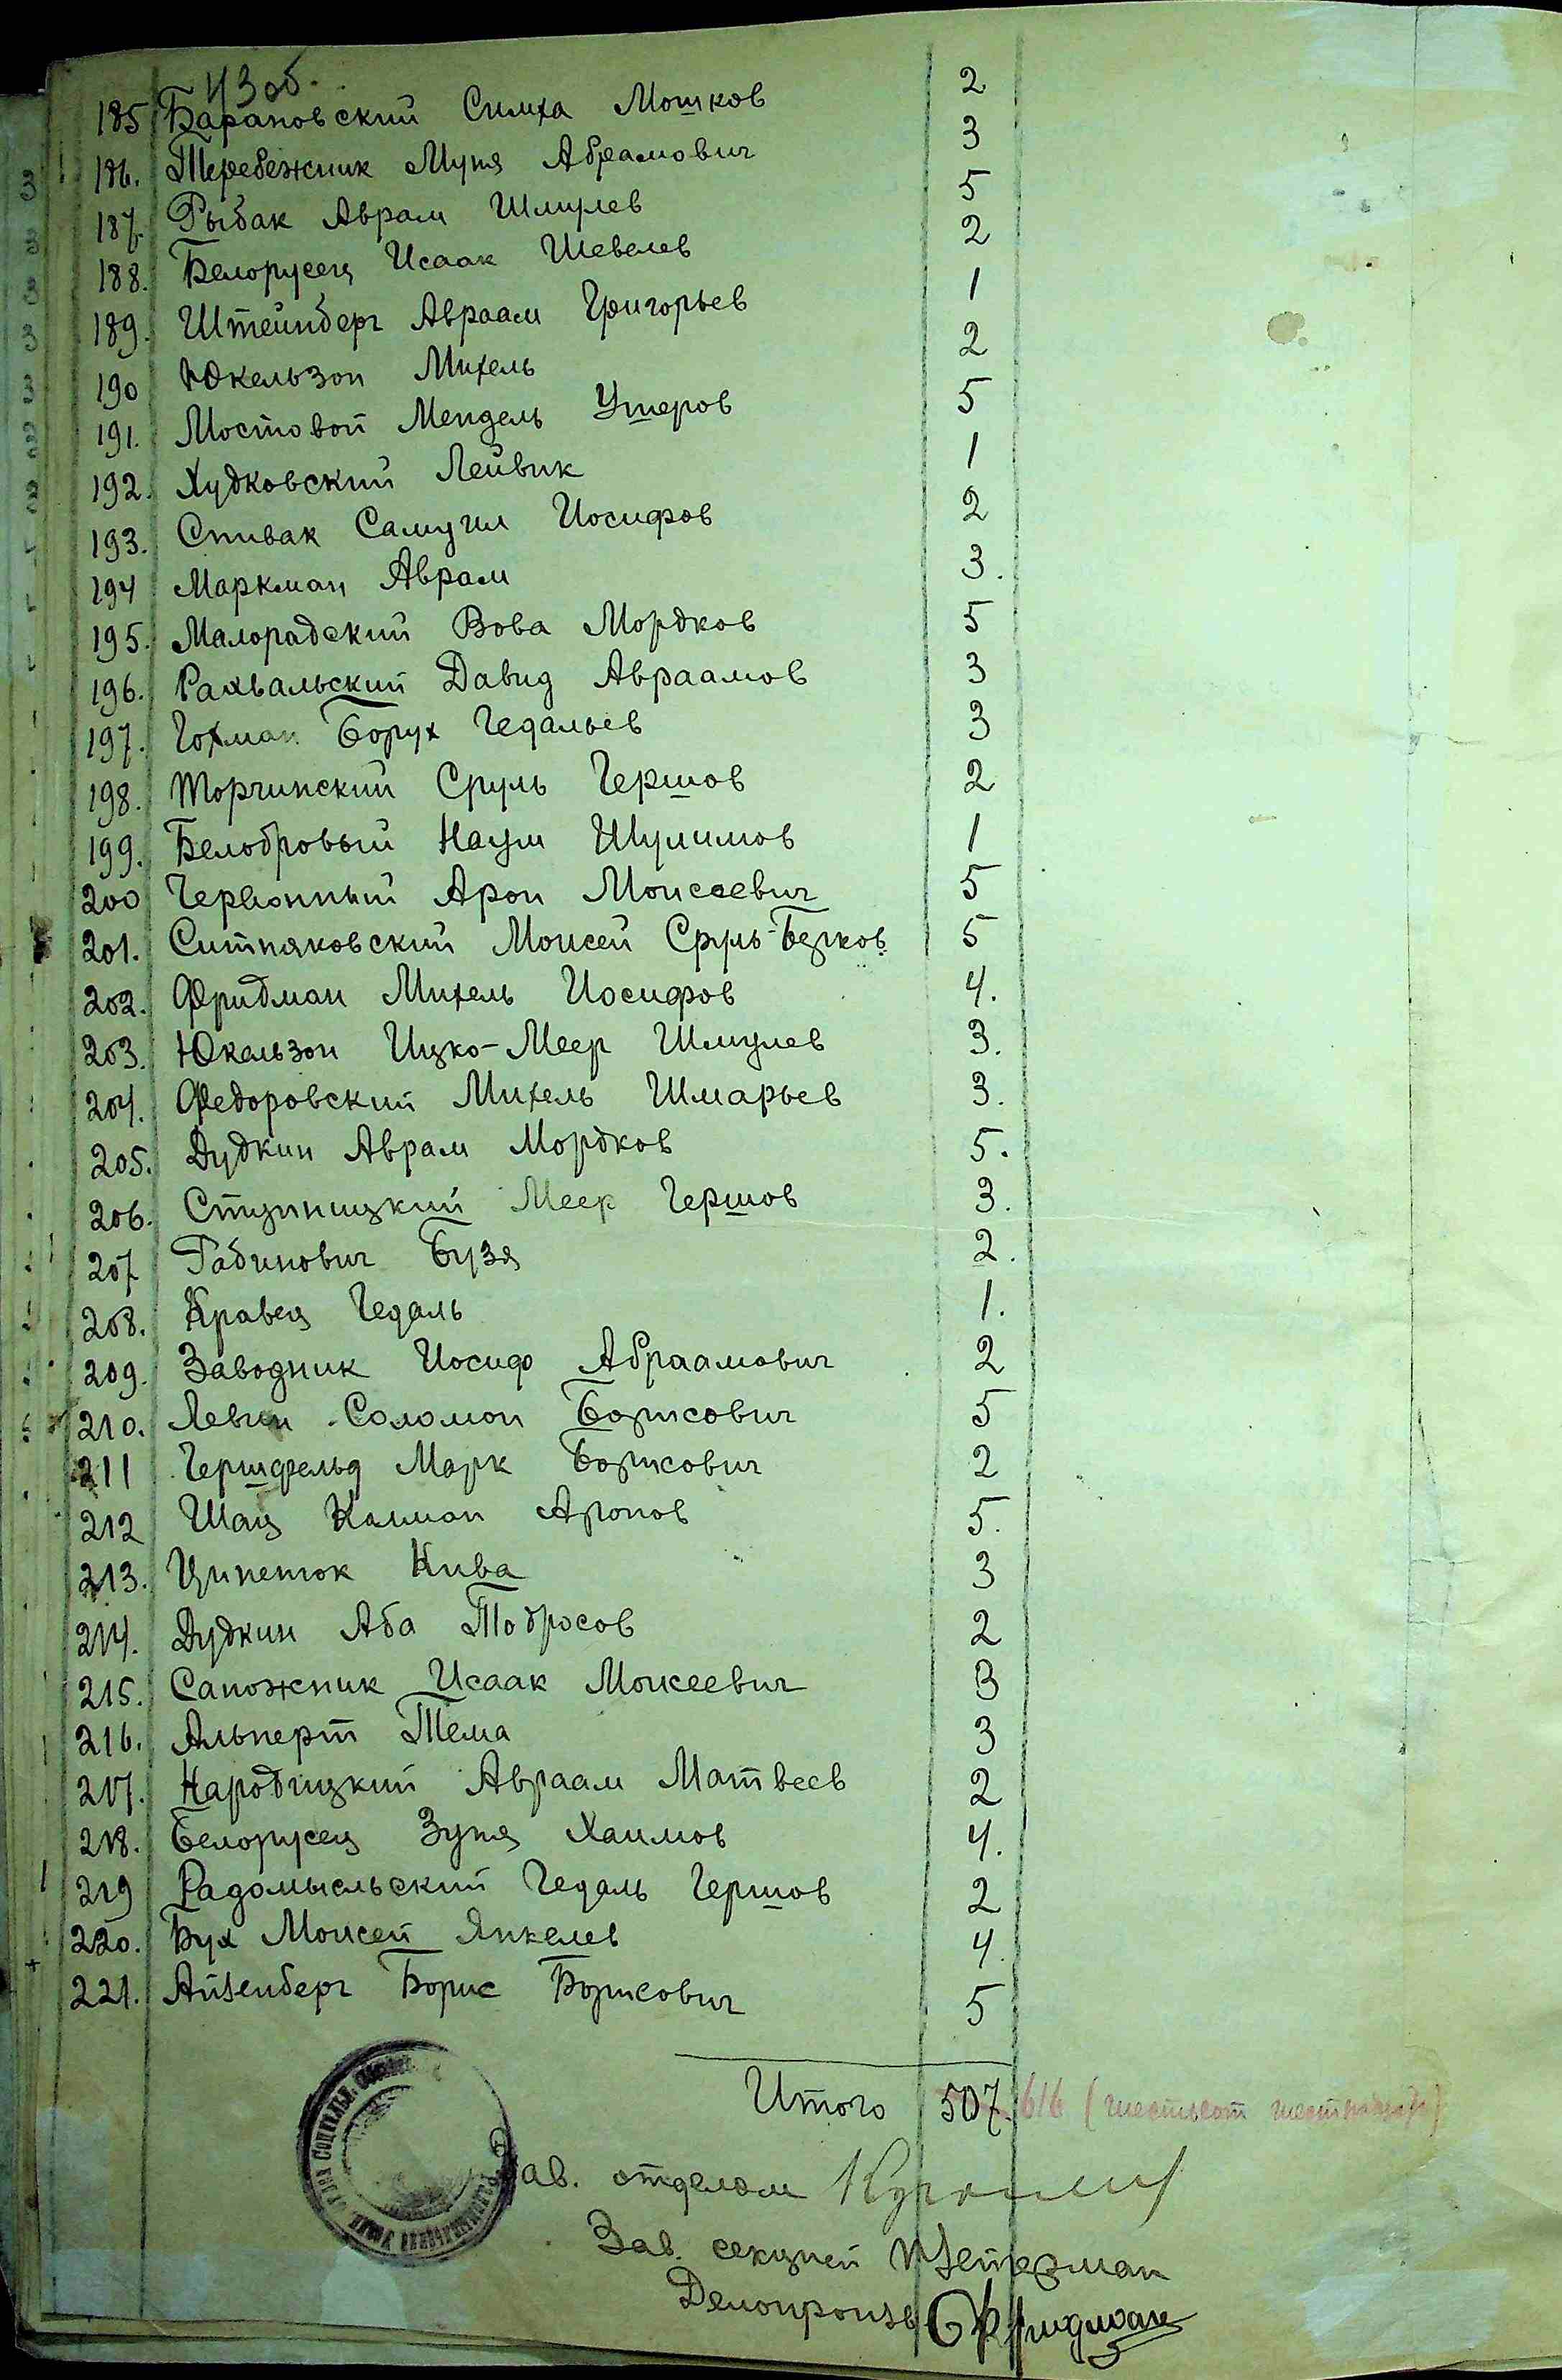 43 об.
185 Барановский Симха Мошков 2
186. Теребежник Муня Абрамович 3
187. Рыбак Аврам Шмулев 5
188. Белорусец Исаак Шевелев 2
189. Штейнберг Авраам Григорьев 1
190 Юкельзон Михель 2
191. Мостовой Мендель Ушеров 5
192. Худковский Лейвик 1
193. Спивак Самуил Иосифов 2
194 Маркман Аврам 3.
195. Малорадский Вова Мордков 5
196. Рахвальский Давид Авраамов 3
197. Гохман Борух Гедальев 3
198. Торчинский Сруль Гершов 2
199. Белобровый Наум Шулимов 1
200 Червонный Арон Моисеевич 5
201. Ситняковский Моисей Сруль-Берков 5
202. Фридман Михель Иосифов 4.
203. Юкельзон Ицко-Меер Шмулев 3.
204. Федоровский Михель Шмарьев 3.
205. Дудкин Аврам Мордков 5.
206. Меер Гершов 3.
207 Рабинович Бузя 2.
208. Кравец Гедаль 1.
209. Заводник Иосиф Абраамович 2
210. Левин Соломон Борисович 5
211 Гершфельд Марк Борисович 2
212 Шац Калман Аронов 5.
213. Ципенюк Кива 3
214. Дудкин Аба Тодросов 2
215. Сапожник Исаак Моисеевич 3
216. Альперт Тема 3
217. Народицкий Авраам Матвеев 2
218. Белорусец Зуня Хаимов 4.
219 Радомысльский Гедаль Гершов 2
220. Бух Моисей Янкелев 4
221. Айзенберг Борис Борисович 5
Итого 507. 616 (шестьсот шестнадцать)
Зав. отделом
Зав. секцией
Делопроизв. Фридман